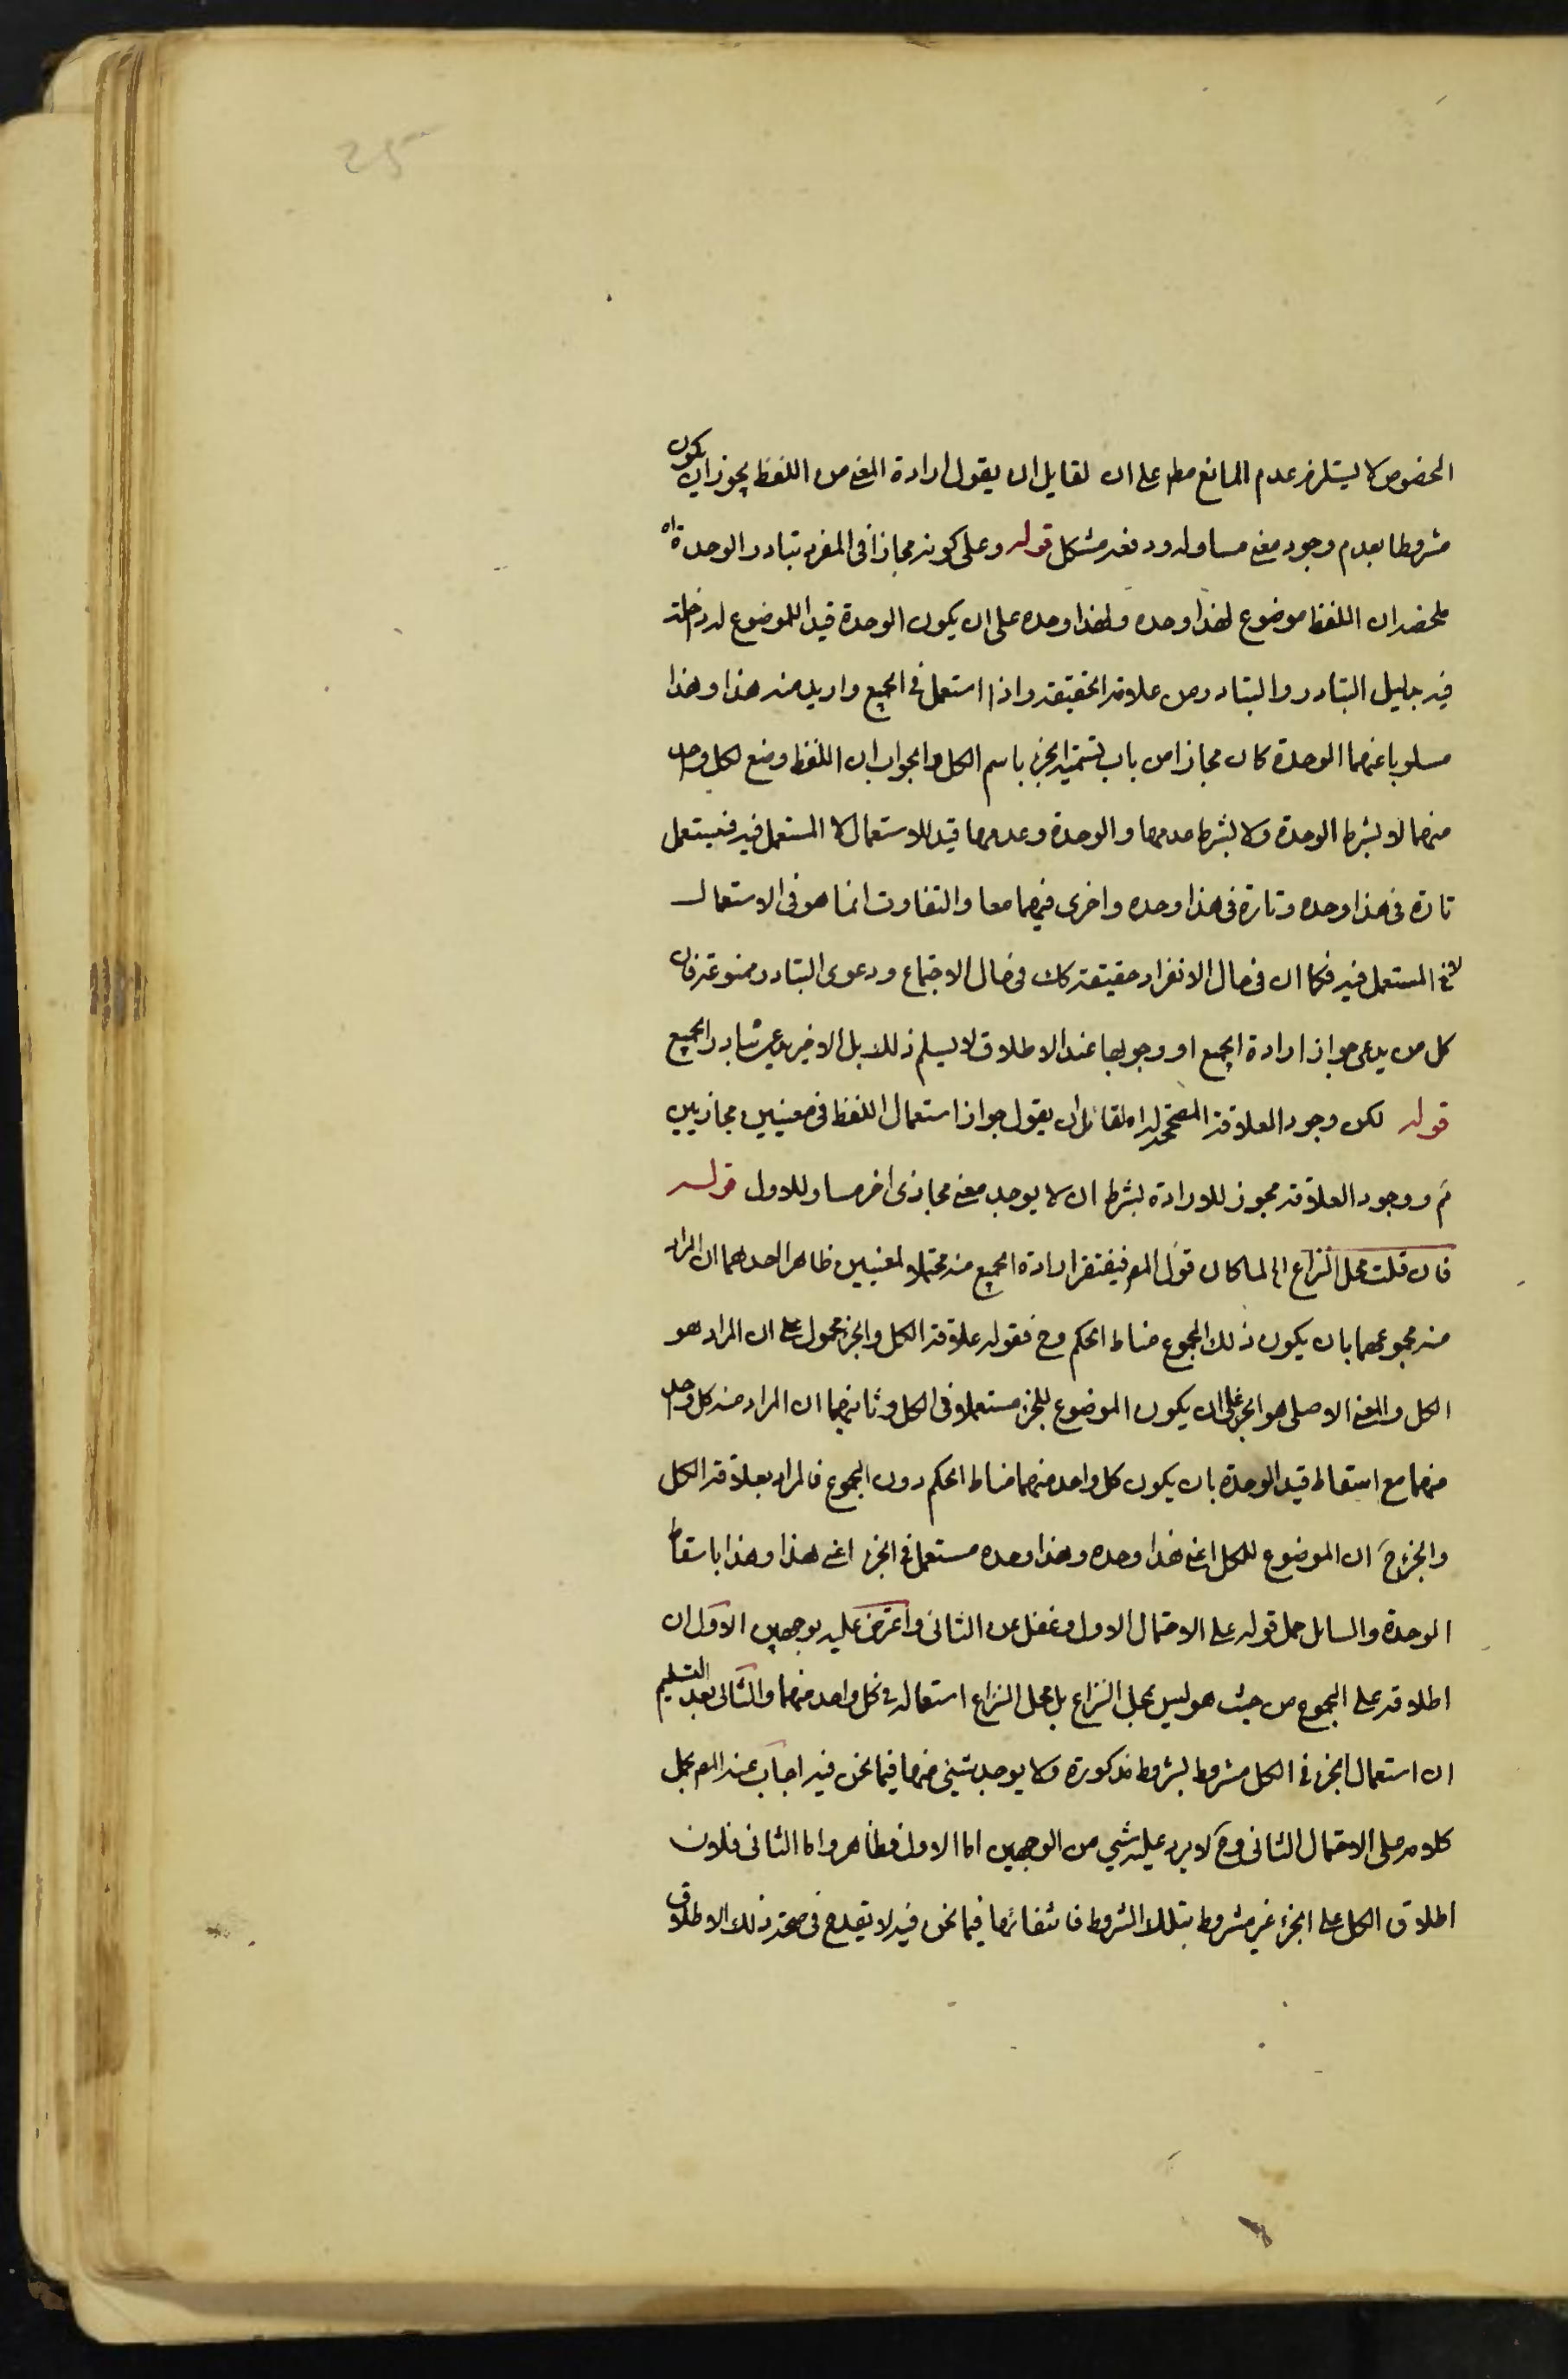 25
الخصوص لا يستلزم عدم المانع مطر على ان لقايل ان يقول ارادة المعنى من اللفظ يجوز ان يكون
مشروطا بعدم وجود معنى مساو له ودفعه مشكل قوله وعلى كونه مجازا فى المفرد تبادر الوحدة اه
ملخصه ان اللفظ موضوع لهذا وحده ولهذا وحده على ان يكون الوحدة قيدا للموضوع له داخلة
فيه بدليل التبادر والتبادر من علامة الحقيقة واذا استعمل فى الجميع واريد منه هذا وهذا
مسلوبا عنهما الوحدة كان مجازا من باب تسمية الجزء باسم الكل والجواب ان اللفظ وضع لكل واحد
منهما لا بشرط الوحدة ولا بشرط عدمها والوحدة وعدمها قيد للاستعمال لا المستعمل فيه فيستعمل
تارة فى هذا وحده وتارة فى هذا وحده واخرى فيهما معا والتفاوت انما هو فى الاستعمال
لا فى المستعمل فيه فكما ان فى حال الانفراد حقيقة كك فى حال الاجتماع ودعوى التبادر ممنوعة فان
كل من يدعى جواز ارادة الجميع او وجوبها عند الاطلاق لا يسلم ذلك بل الاخير يدعى تبادر الجميع
قوله لكن وجود العلاقة المصححة له اه لقائل ان يقول جواز استعمال اللفظ فى معنيين مجازيين
ثم ووجود العلاقة مجوز للارادة بشرط ان لا يوجد معنى مجازى اخر مساو للاول قوله
فان قلت محل النزاع اه لما كان قول المص فيفتقر ارادة الجميع منه محتملا لمعنيين ظاهرا احدهما ان المراد
منه مجموعهما بان يكون ذلك المجموع مناط الحكم وح فقوله علاقة الكل والجزء محمول على ان المراد هو
الكل والمعنى الاصلى هو الجزء على ان يكون الموضوع للجزء مستعملا فى الكل وثانيهما ان المراد منه كل واحد
منهما مع اسقاط قيد الوحدة بان يكون كل واحد منهما مناط الحكم دون المجموع فالمراد بعلاقة الكل
والجزء ح ان الموضوع للكل اعنى هذا وحده وهذا وحده مستعمل فى الجزء اعنى هذا وهذا باسقاط
الوحدة والسايل حمل قوله على الاحتمال الاول وغفل عن الثانى واعترض عليه بوجهين الاول ان
اطلاقه على المجموع من حيث هو ليس محل النزاع بل محل النزاع استعماله فى كل واحد منهما والثانى بعد التسليم
ان استعمال الجزء فى الكل مشروط بشروط مذكورة ولا يوجد شيئ منها فيما نحن فيه اجاب عنه المص بحمل
كلامه على الاحتمال الثانى وح لا يرد عليه شيء من الوجهين اما الاول فظاهر واما الثانى فلان
اطلاق الكل على الجزء غير مشروط بتلك الشروط فانتفائها فيما نحن فيه لا يقدح فى صحة ذلك الاطلاق